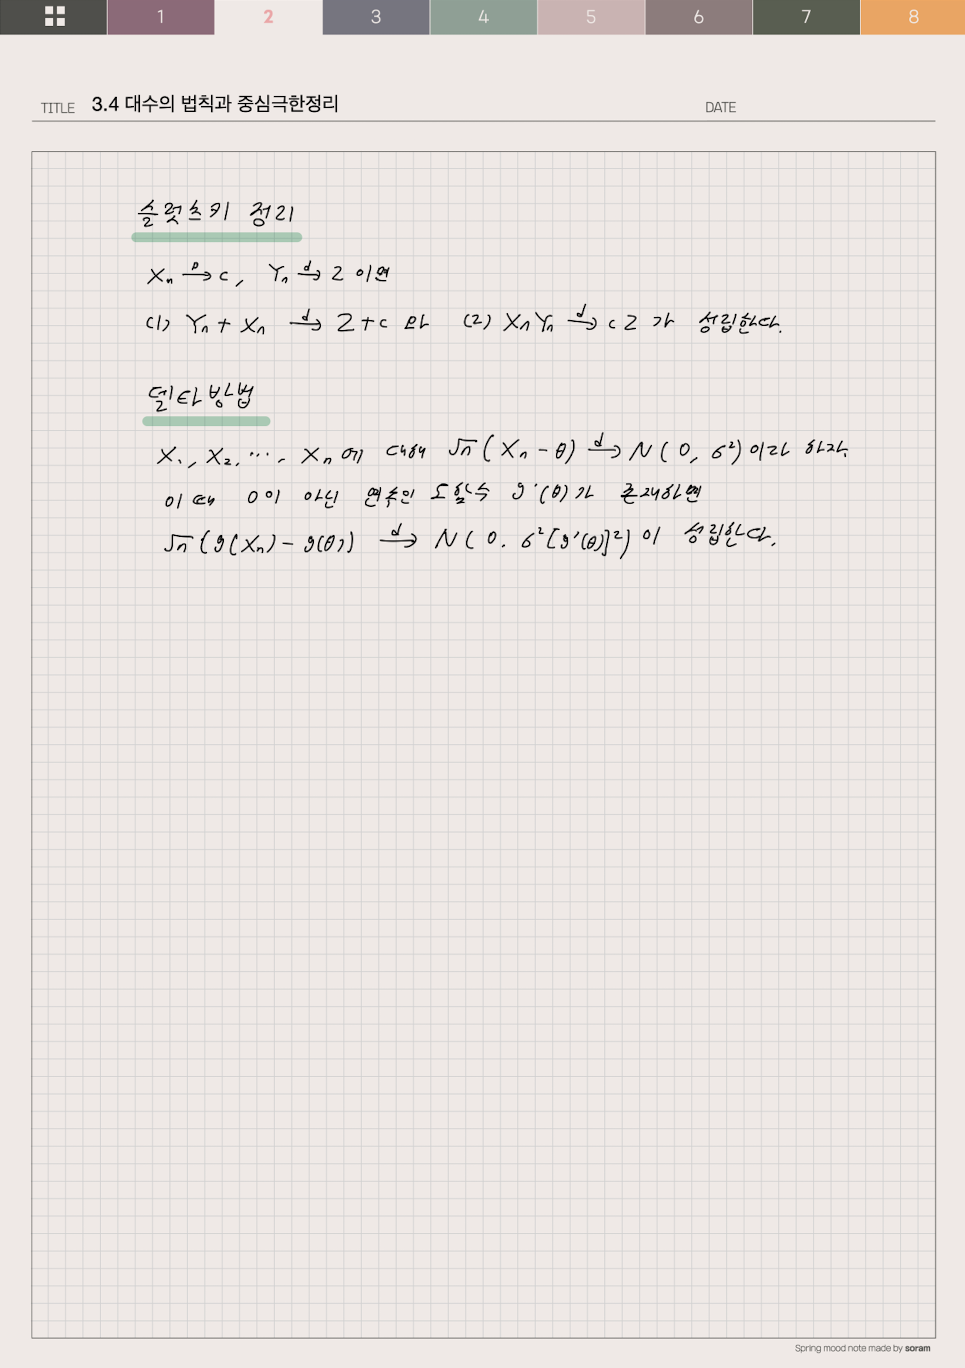 1 2 3 4 5 6 7 8
TITLE 3.4 대수의 법칙과 중심극한정리 DATE
슬럿츠키 정리
Xₙ →ᵖ c, Yₙ →ᵈ Z 이면
(1) Yₙ + Xₙ →ᵈ Z + c 와 (2) XₙYₙ →ᵈ cZ 가 성립한다.
델타방법
X₁, X₂, ⋯, Xₙ 에 대해 √n (Xₙ - θ) →ᵈ N(0, σ²) 이라 하자.
이 때 0이 아닌 연속인 도함수 g'(θ)가 존재하면
√n (g(Xₙ) - g(θ)) →ᵈ N(0. σ²[g'(θ)]²) 이 성립한다.
Spring mood note made by soram